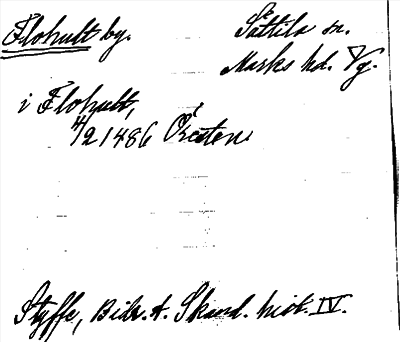 Flohult by. Sätila sn.
Marks hd. Vg.
i Flohult,
4/2 1486 Öresten
Styffe, Bidr. t. Skand. hist. IV.